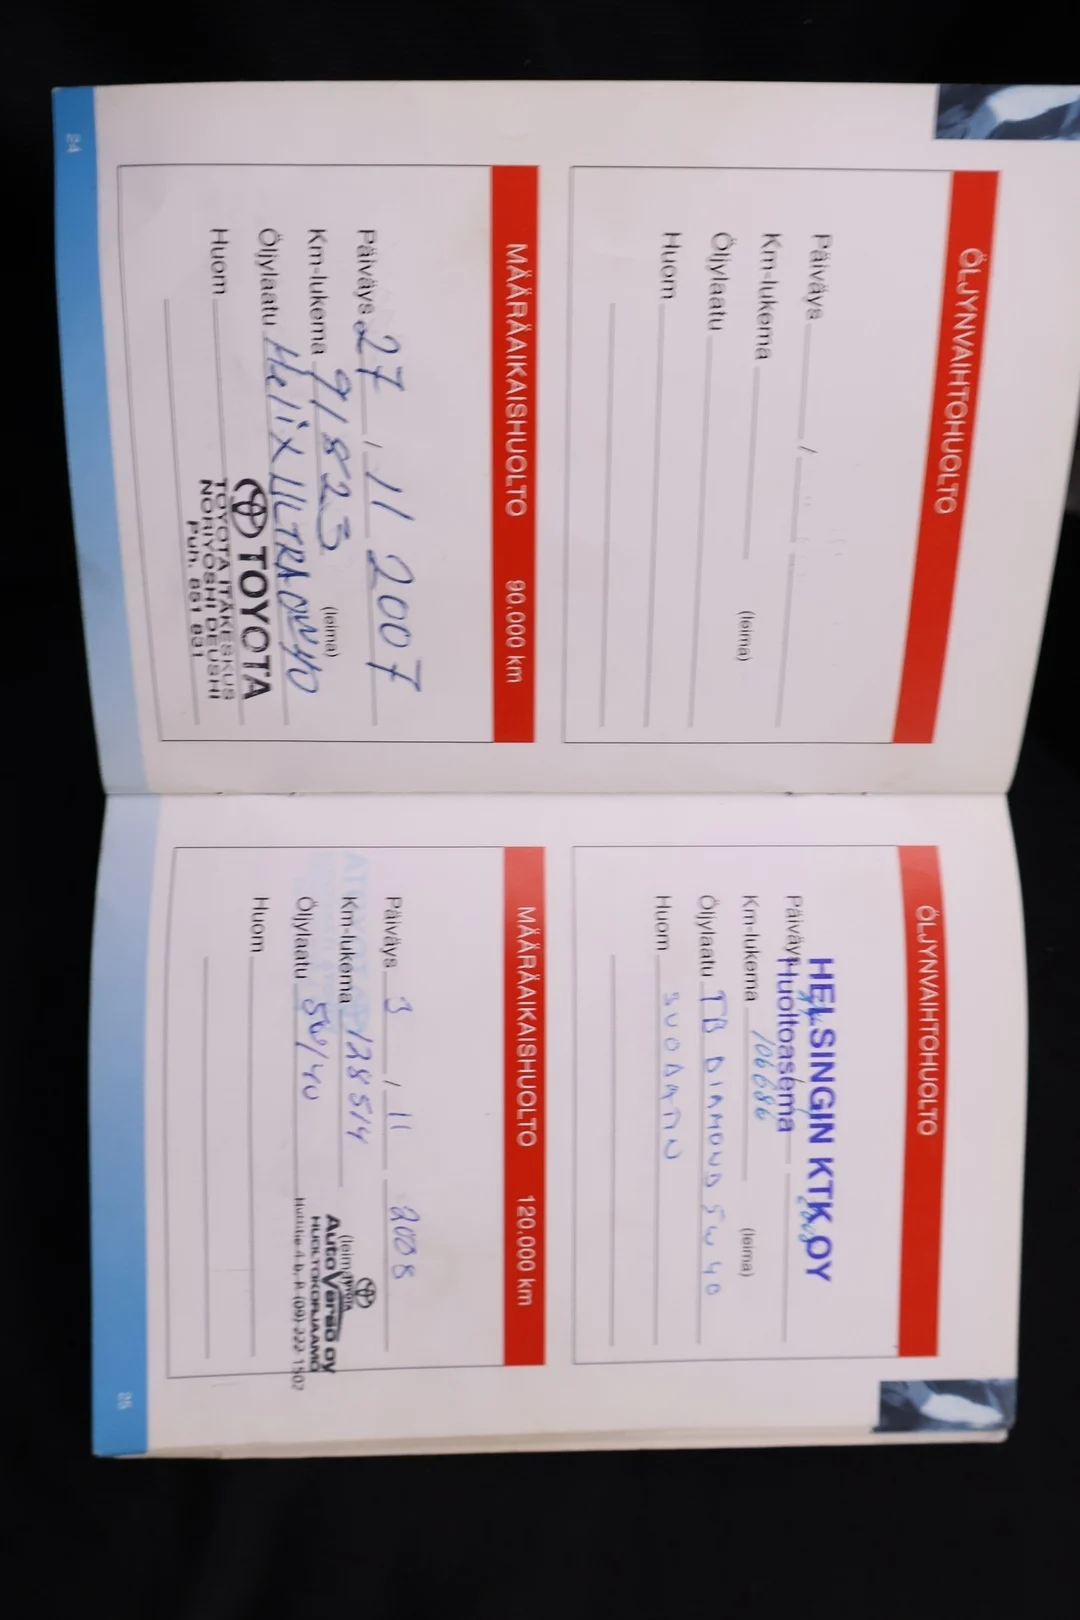 ÖLJYNVAIHTOHUOLTO
Päiväys / 
Km-lukema
(leima)
Öljylaatu
Huom
MÄÄRÄAIKAISHUOLTO 90.000 km
Päiväys 27 / 11 2007
Km-lukema 91823
(leima)
Öljylaatu Helix ULTRA 0W40
TOYOTA
Huom
TOYOTA ITÄKESKUS
NORIYOSHI DEUSHI
Puh. 851 831
24
ÖLJYNVAIHTOHUOLTO
HELSINGIN KTK OY
Päiväys Huoltoasema 2008
Km-lukema 106686
(leima)
Öljylaatu TB DIAMOND 5W40
Huom SUODATIN
MÄÄRÄAIKAISHUOLTO 120.000 km
Päiväys 3 / 11 2008
Km-lukema 128514
(leima)
TOYOTA
AutoVarso oy
HUOLTOKORJAAMO
P. (09) 222 1502
Öljylaatu 5W/40
Huom
25